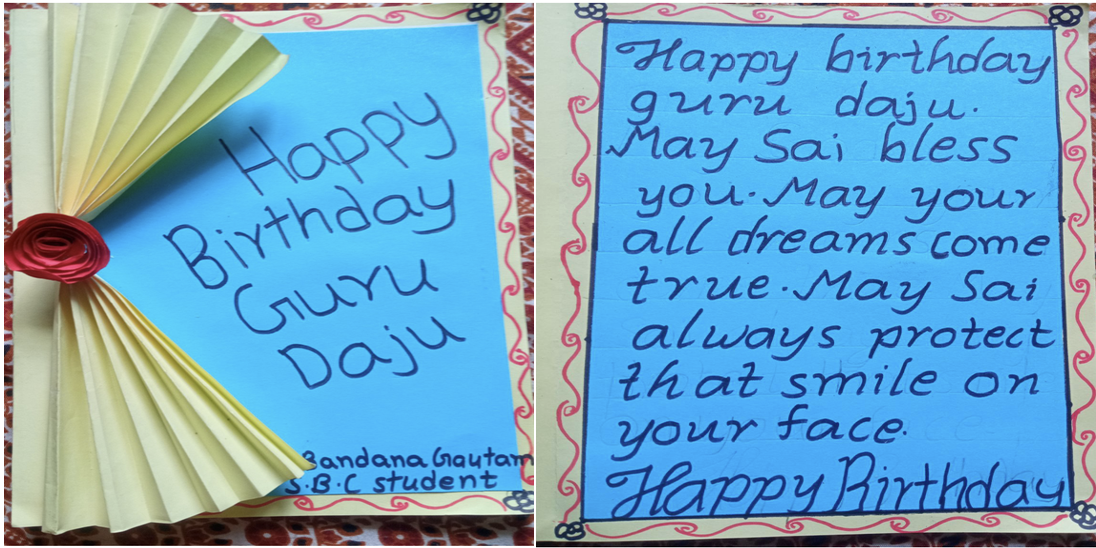 Happy
Birthday
Guru
Daju
Bandana Gautam
S.B.C student
Happy birthday
guru daju.
May Sai bless
you. May your
all dreams come
true. May Sai
always protect
that smile on
your face.
Happy Birthday